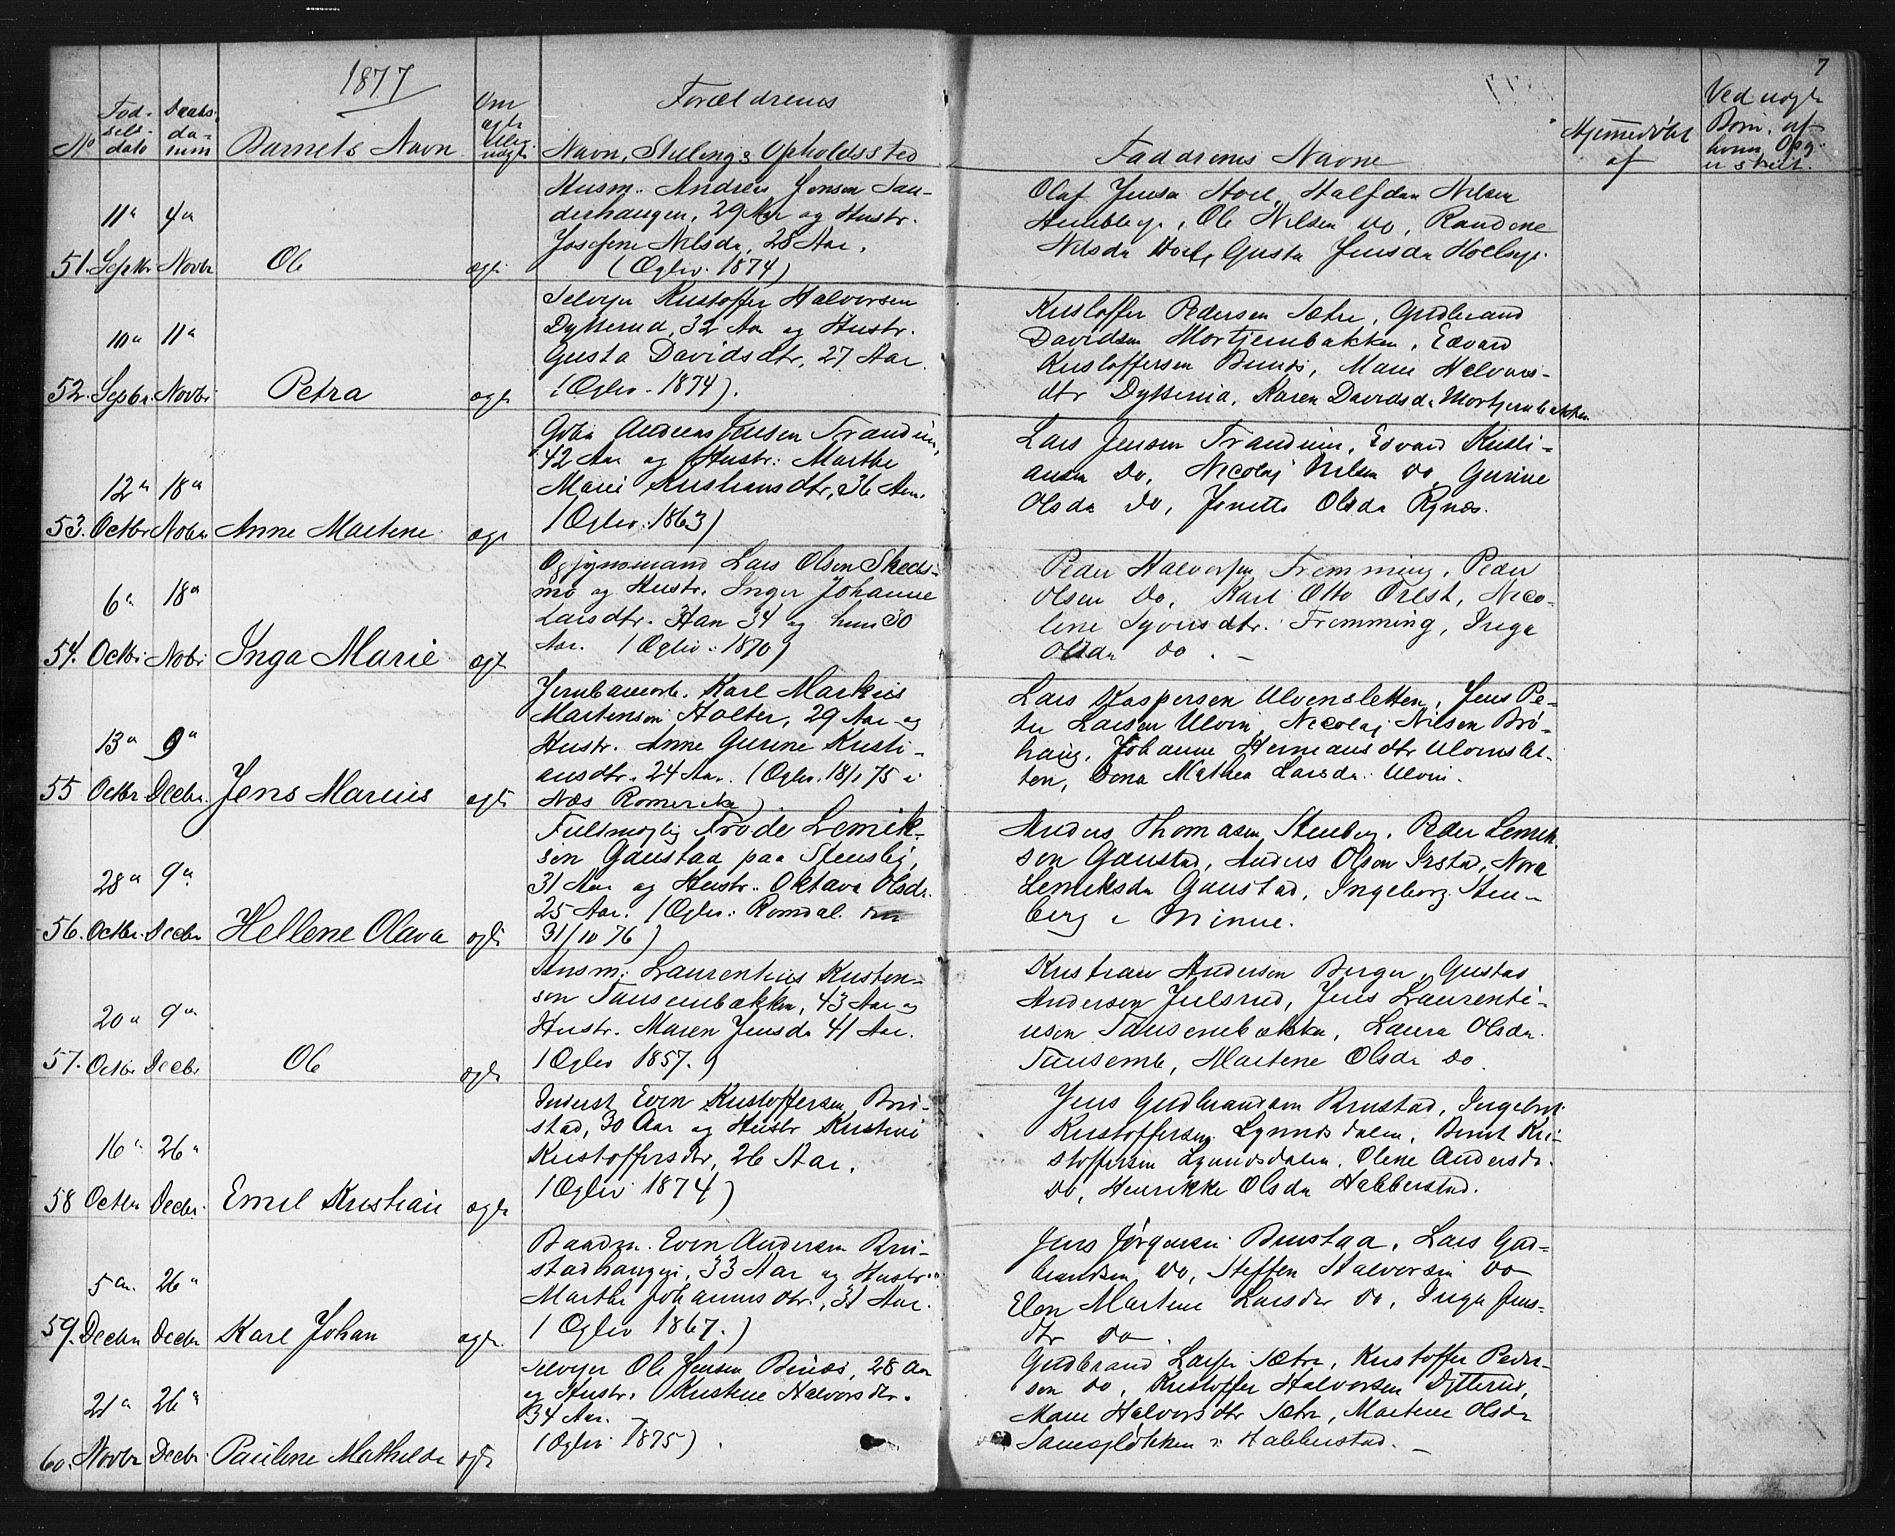 1877
7
No
Fød-
sels-
dato
Daabs-
da-
tum
Barnets Navn
Om
ægte
Ell.
uægte
Forældrenes
Navn, Stilling & Opholdssted
Faddrenes Navne
Hjemmedøbt
af
Ved uægte
Børn, af
hvem Opg.
er skeet.
51. 11te Septbr 4de Novbr Ole ægte
Husm. Andreas Jensen San-
derhaugen, 29 Aar og Hustr.
Josefine Nilsdr, 28 Aar.
(Ægtev. 1874)
Olaf Jensen Hoel, Halfdan Nilsen
Ole Nilsen do, Randine
Nilsdr Hoel, Gusta Jensdr Hoelseje.
52. 10de Septbr. 11te Novbr Petra ægte
Selvejer Kristoffer Halvorsen
Dytterud, 32 Aar og Hustr.
Gusta Davidsdtr, 27 Aar.
(Ægtev. 1874).
Kristoffer Pedersen Sætre, Gudbrand
Davidsen Mortjernbakken, Edvard
Kristoffersen Bunæs, Maren Halvors-
dtr Dytterud, Karen Davidsdr Mortjernbakken
53. 12te Octbr 18de Nobr Anne Martene ægte
Gdbr Andreas Jensen Trandum,
42 Aar og Hustr: Marthe
Marie Kristiansdtr, 36 Aar.
(Ægtev. 1863)
Lars Jensen Trandum, Edvard Kristi-
ansen do, Nicolaj Nilsen do, Gurine
Olsdr do, Jenette Olsdr Rynæs.
54. 6te Octbr 18de Nobr Inga Marie ægte
Opsynsmand Lars Olsen Skeds-
mo og Hustr. Inger Johanne
Larsdtr. Han 34 og hun 30
Aar. (Ægtev. 1870)
Peder Halvorsen Fremming, Peder
Olsen do, Karl Otto Qvist, Nico-
line Syversdtr. Fremming, Inga
Olsdr do. –
55 13de Octbr 9de Decbr. Jens Marius ægte
Jernbanearb. Karl Markus
Martenson Holter, 29 Aar og
Hustr. Anne Gurine Kristi-
ansdtr. 24 Aar. (Ægtev. 18/1 75 i
Næs Romerike)
Lars Kaspersen Ulvensletten, Jens Pe-
ter Larsen Ulvin, Nicolaj Nilsen Brø-
haug, Johanne Hermansdtr Ulvenslet-
ten, Dona Mathea Larsdr. Ulvin.
56. 28de Octbr. 9de Decbr Hellene Olava ægte
Fuldmægtig Frode Lemik-
sen Gaustad paa Stensby,
31 Aar og Hustr. Oktava Olsdr.
25 Aar. (Ægtev. Romdal
31/10 76)
Anders Thomasen Stenberg, Peder Lemik-
sen Gaustad, Anders Olsen Irstad, Nora
Lemiksdr Gaustad, Ingeborg Sten-
berg i Minne.
57. 20de Octbr 9de Decbr Ole ægte
Husm. Laurentius Kristen-
sen Tausenbakken, 43 Aar og
Hustr. Maren Jensdr 41 Aar.
(Ægtev 1857.)
Kristian Andersen Berger, Gustav
Andersen Julsrud, Jens Laurenti-
usen Tausenbakken, Laura Olsdr.
Martene Olsdr do.
58 16de Octbr 26de Decbr. Emil Kristian ægte
Inderst Even Kristoffersen Bru-
stad, 30 Aar og Hustr Kristine
Kristoffersdtr, 26 Aar.
(Ægtev 1874)
Jens Gudbrandsen Brustad, Ingebret
Kristoffersen Lynnisdalen, Bernt Kri-
stoffersen Lynnisdalen, Olene Andersdr.
do, Henrikke Olsdr Habberstad.
59. 5te Decbr 26de Decbr Karl Johan ægte
Baadm. Even Andersen Bru-
stadhaugen, 33 Aar og Hustr.
Marthe Johannesdtr., 31 Aar.
(Ægtev 1867.)
Jens Jørgensen Brustad, Lars Gud-
brandsen do, Steffen Halvorsen do
Elen Martene Larsdtr do, Inga Jens-
dtr do.
60. 21de Novbr 26de Decbr. Pauline Mathilde ægte
Selvejer Ole Jensen Bunæs, 28 Aar
og Hustr. Kristine Halvorsdtr.
34 Aar.
(Ægtev 1875).
Gudbrand Larsen Sætre, Kristoffer Peder-
sen do, Kristoffer Halvorsen Dytterud,
Maren Halvorsdtr Sætre, Martene Olsdr
i Habberstad. –